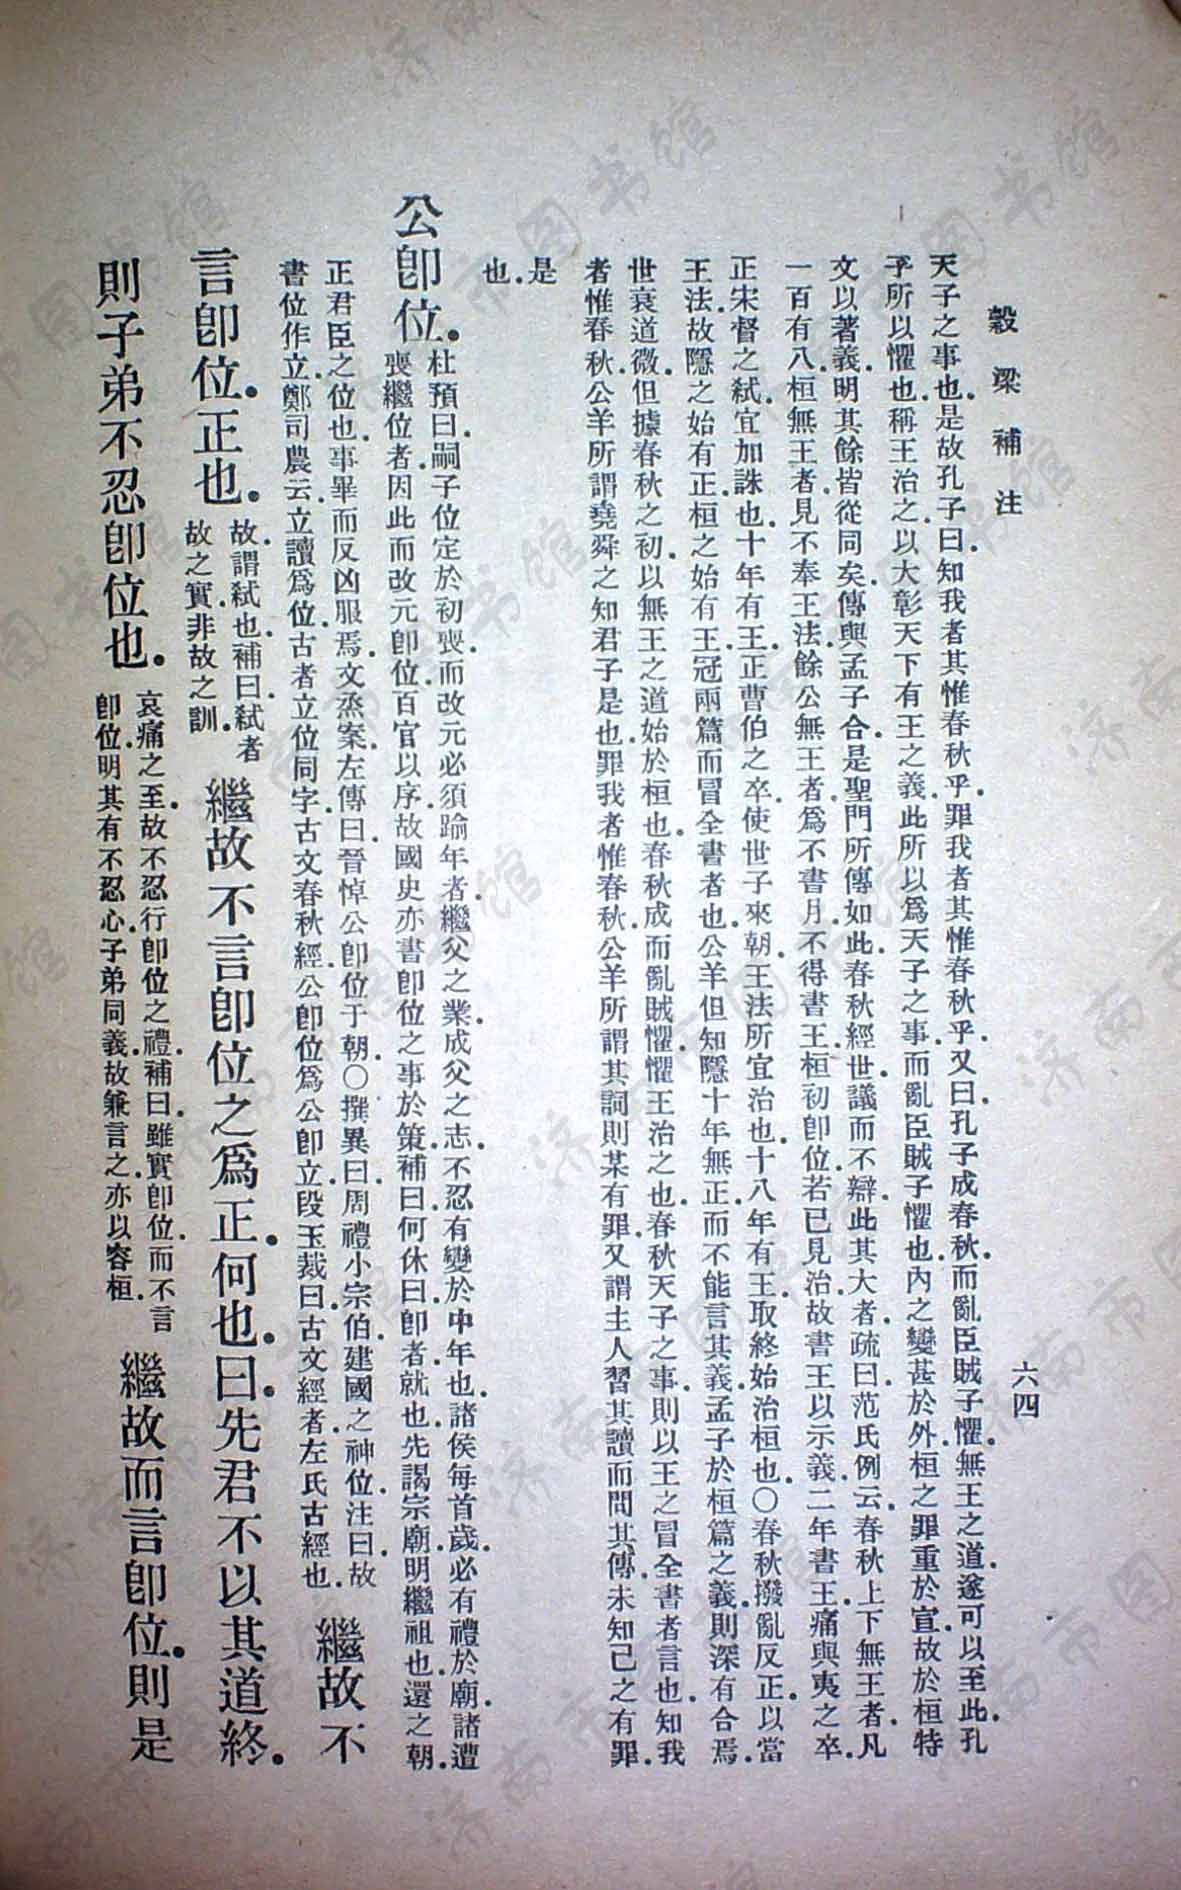 穀梁補注
六四
天子之事也是故孔子曰知我者其惟春秋乎罪我者其惟春秋乎又曰孔子成春秋而亂臣賊子懼無王之道遂可以至此孔
子所以懼也稱王治之以大彰天下有王之義此所以爲天子之事而亂臣賊子懼也內之變甚於外桓之罪重於宣故於桓特
文以著義明其餘皆從同矣傳與孟子合是聖門所傳如此春秋經世議而不辯此其大者疏曰范氏例云春秋上下無王者凡
一百有八桓無王者見不奉王法餘公無王者爲不書月不得書王桓初卽位若已見治故書王以示義二年書王痛與夷之卒
正宋督之弒宜加誅也十年有王正曹伯之卒使世子來朝王法所宜治也十八年有王取終始治桓也○春秋撥亂反正以當
王法故隱之始有正桓之始有王冠兩篇而冒全書者也公羊但知隱十年無正而不能言其義孟子於桓篇之義則深有合焉
世衰道微但據春秋之初以無王之道始於桓也春秋成而亂賊懼懼王治之也春秋天子之事則以王之冒全書者言也知我
者惟春秋公羊所謂堯舜之知君子是也罪我者惟春秋公羊所謂其詞則某有罪又謂主人習其讀而問其傳未知己之有罪
是
也
公卽位。
杜預曰嗣子位定於初喪而改元必須踰年者繼父之業成父之志不忍有變於中年也諸侯每首歲必有禮於廟諸遭
喪繼位者因此而改元卽位百官以序故國史亦書卽位之事於策補曰何休曰卽者就也先謁宗廟明繼祖也還之朝
正君臣之位也事畢而反凶服焉文烝案左傳曰晉悼公卽位于朝○撰異曰周禮小宗伯建國之神位注曰故
書位作立鄭司農云立讀爲位古者立位同字古文春秋經公卽位爲公卽立段玉裁曰古文經者左氏古經也
繼故不
言卽位。正也。
故謂弒也補曰弒者
故之實非故之訓
繼故不言卽位之爲正。何也。曰。先君不以其道終。
則子弟不忍卽位也。
哀痛之至故不忍行卽位之禮補曰雖實卽位而不言
卽位明其有不忍心子弟同義故兼言之亦以容桓
繼故而言卽位。則是